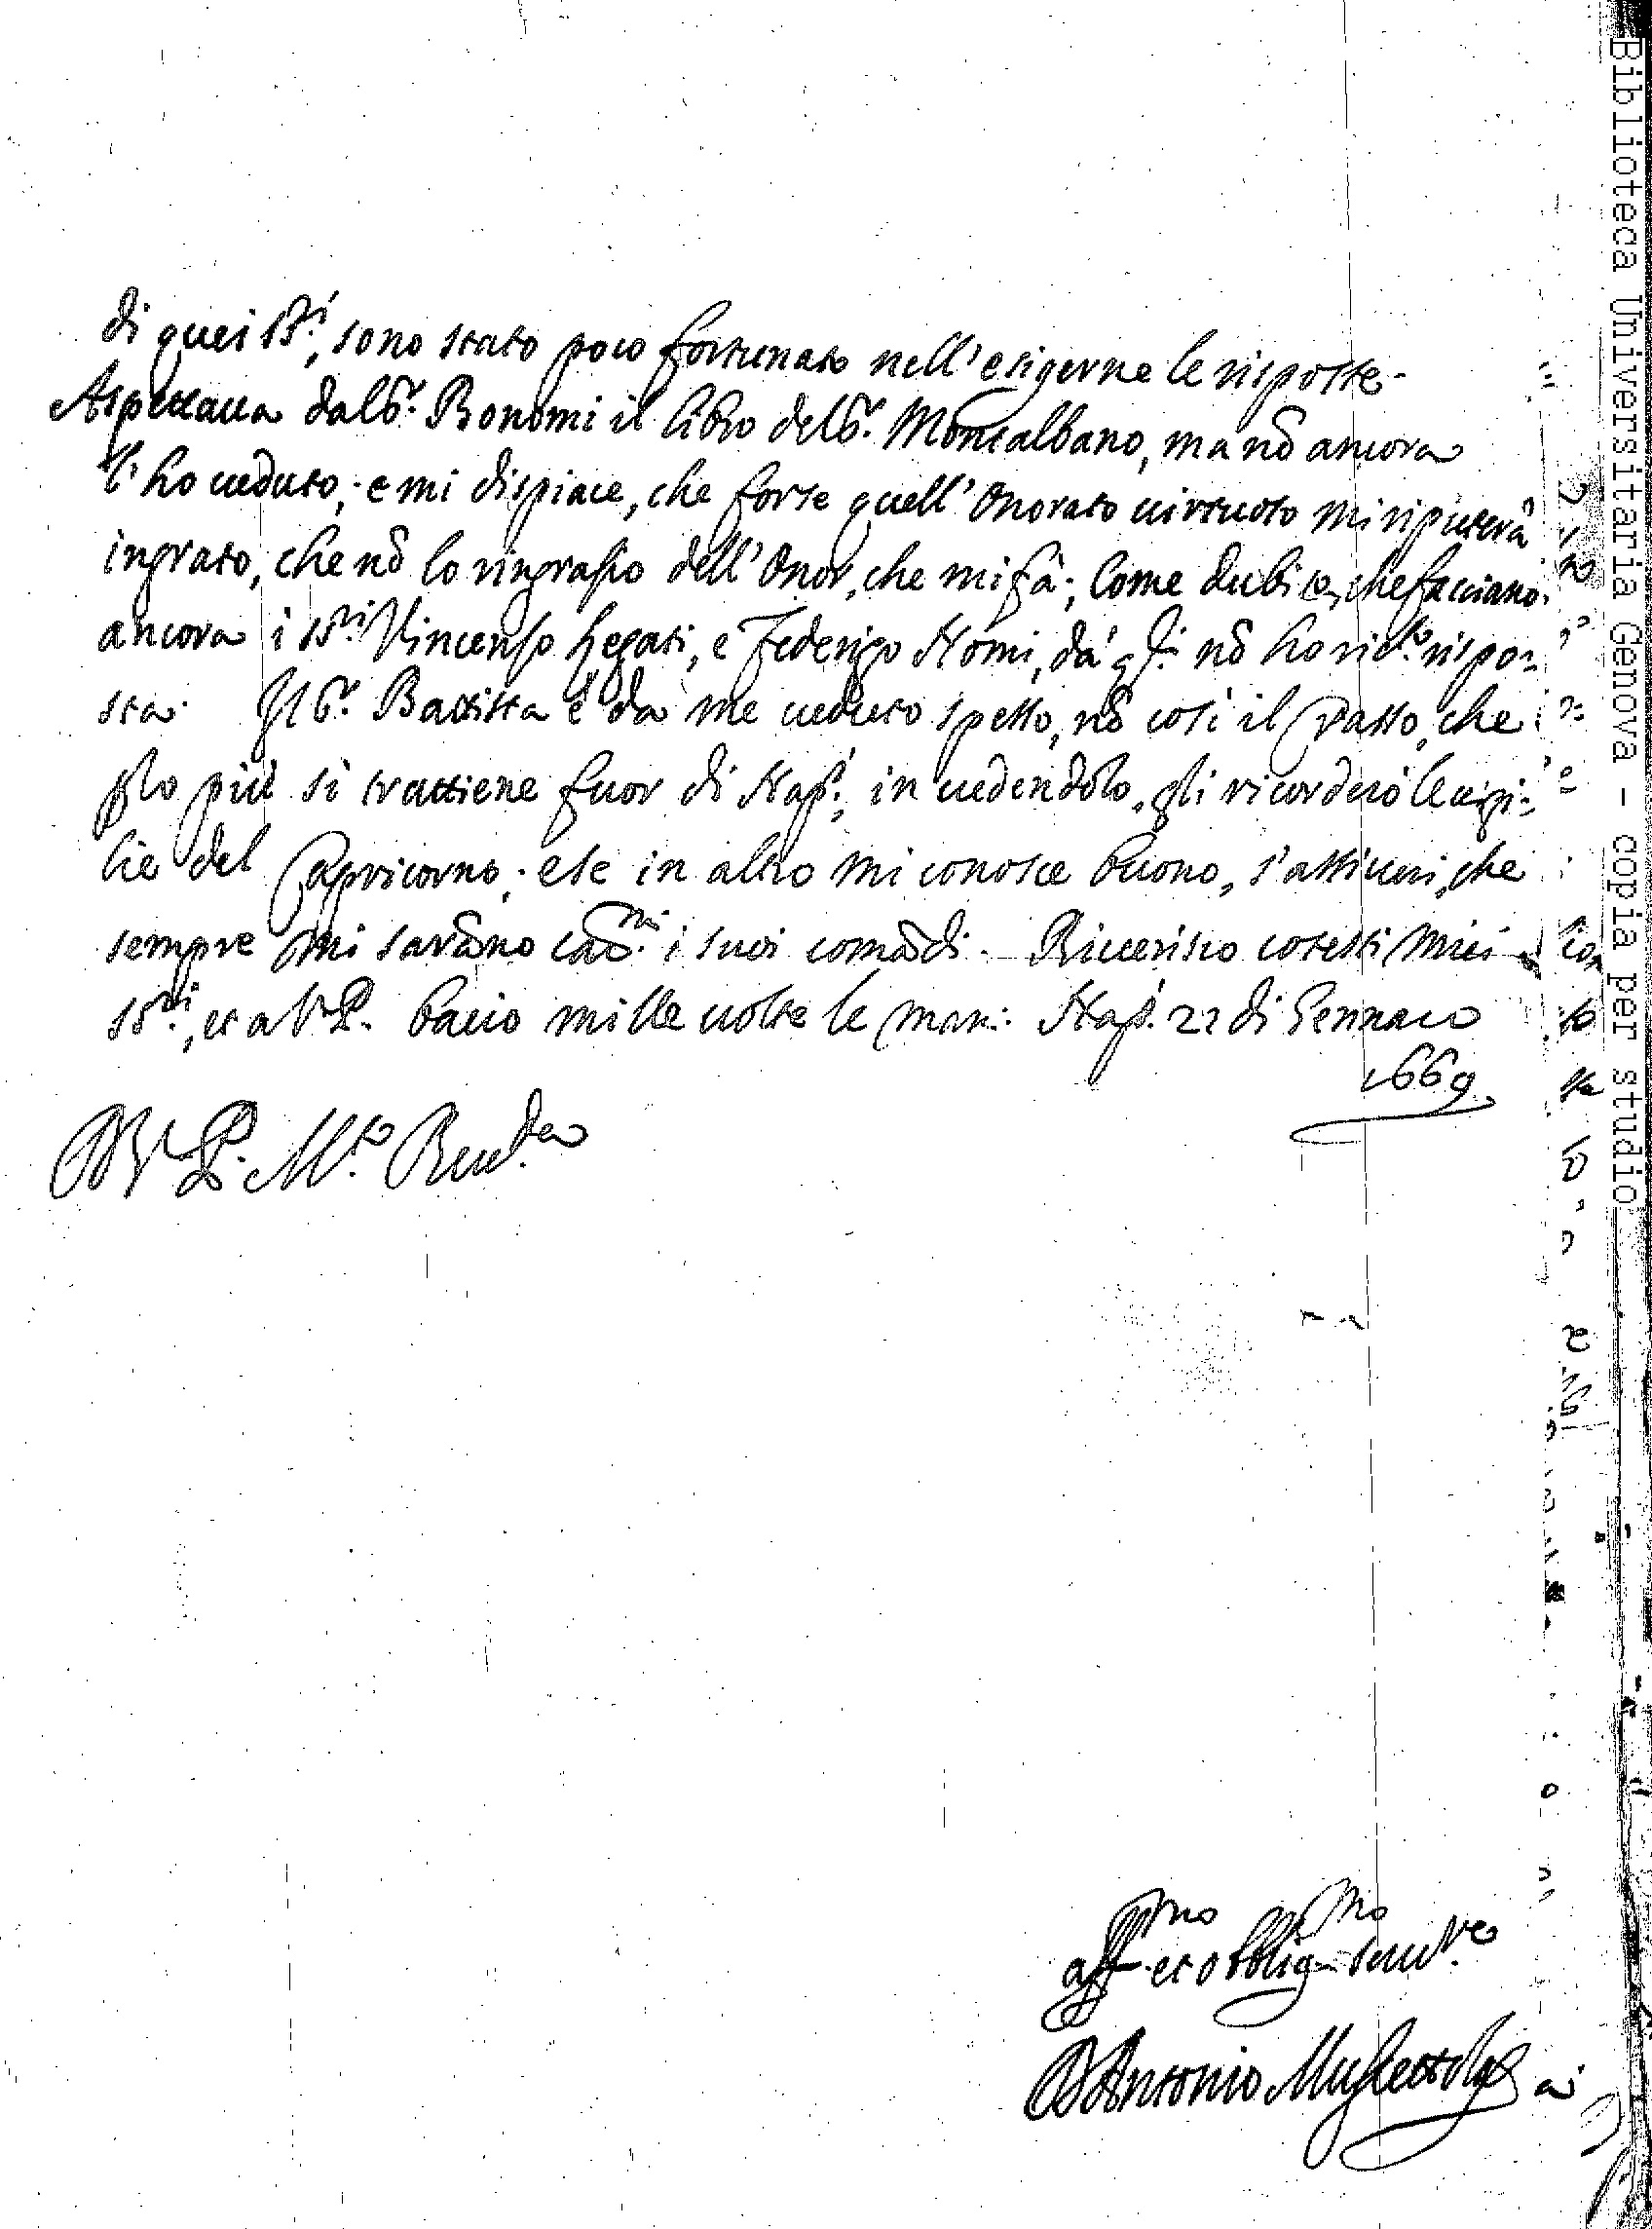 di quei SS.ri, sono stato poco fortunato nell'esigerne le risposte.
Aspettaua dal S.r Bonomi il libro del S.r Montalbano, ma nõ ancora
l'ho ueduto, e mi dispiace, che forse quell'Onorato uirtuoso mi riputerà
ingrato, che nõ lo ringrazio dell'Onor, che mi fà; Come dubito, che facciano
ancora i SS.ri Vincenzo Zegati, e Federigo Nomi, dà q.li nõ ho ric.to rispo=
sta. Il S.r Battista è da me ueduto spesso, nõ così il Dasso, che
p lo più si trattiene fuor di Nap.i, in uedendolo, gli ricorderò le uigi=
lie del Capricorno; e se in altro mi conosce buono, s'assicuri, che
sempre mi sarãno car.mi i suoi comãdi. Riuerisco cotesti miei
SS.ri, et a V.P. bacio mille uolte le man: Nap.i 22 di Gennaro
1669
V.P. M.to Reu.da
aff.mo et obblig.mo seru.re
D Antonio Muscettola
Biblioteca Universitaria Genova - copia per studio